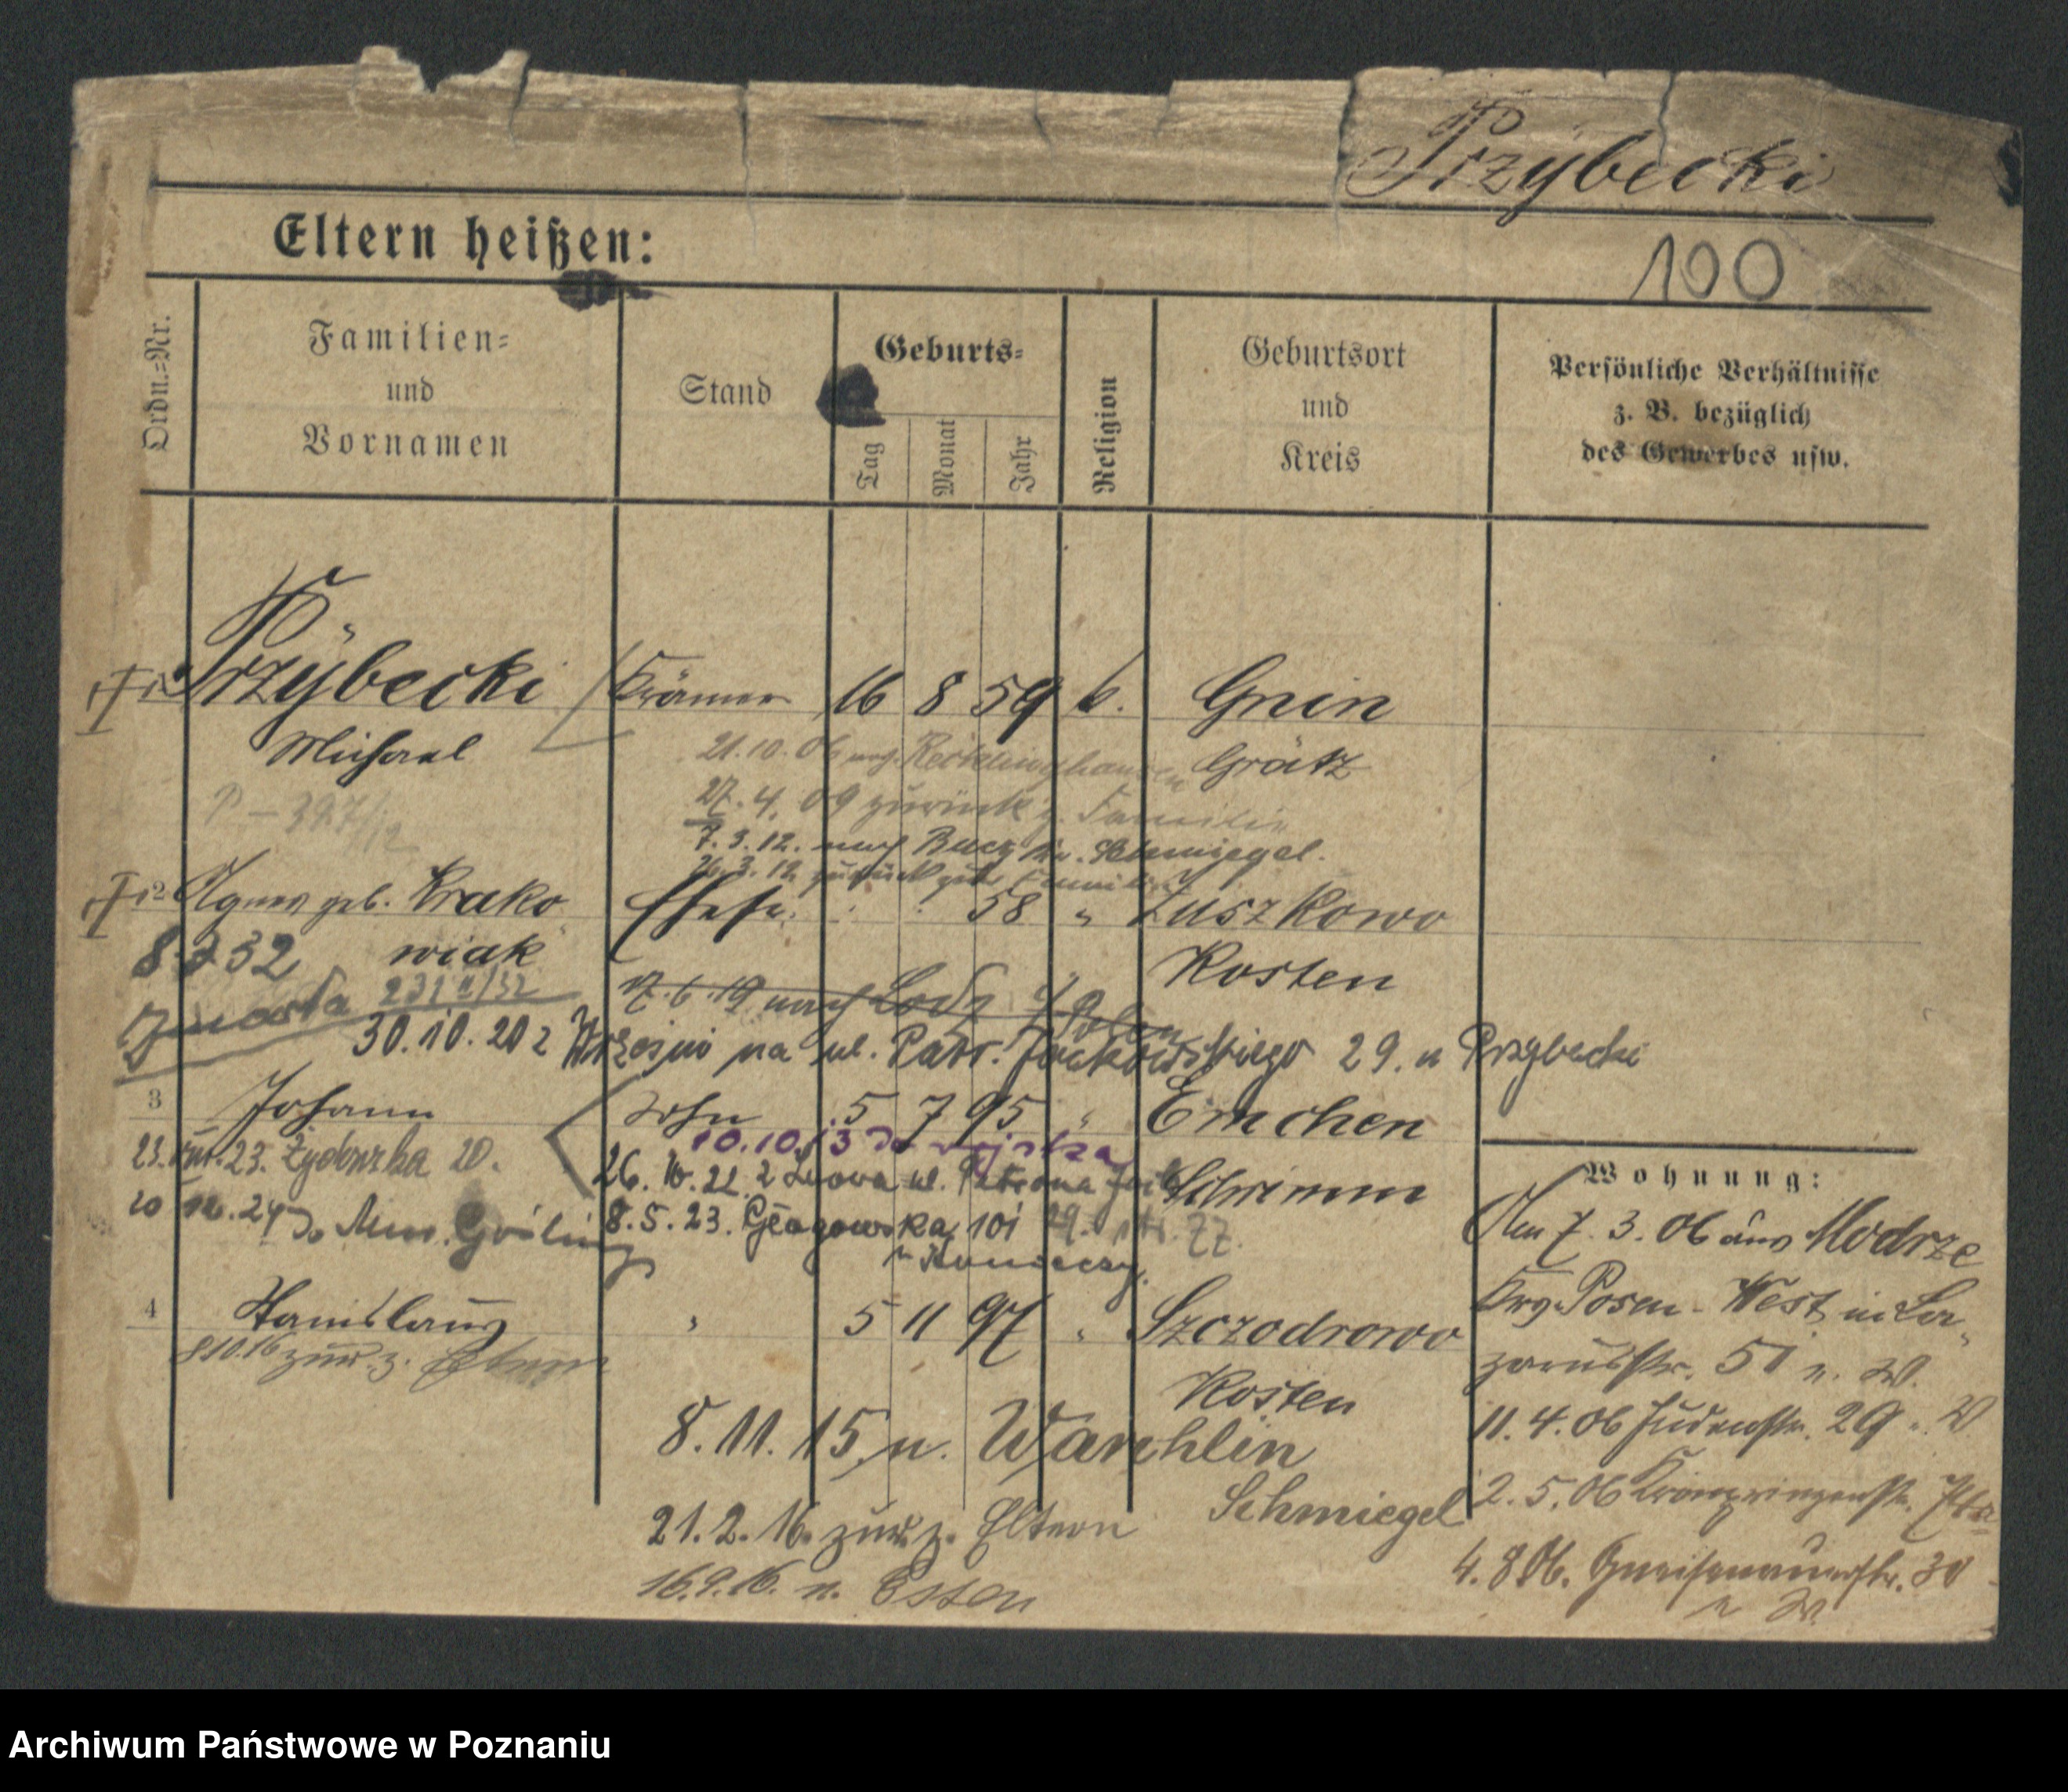 Przybecki
Eltern heißen:
100
Ordn.=Nr.
Familien=
und
Vornamen
Stand
Geburts=
Tag
Monat
Jahr
Religion
Geburtsort
und
Kreis
Persönliche Verhältnisse
z. B. bezüglich
des Gewerbes usw.
1 Przybecki Krämer 16 8 59 k. Gnin
Michael Grätz
21.10.06 nach Recklinghausen
P – 397/12
27.4.09 zurück z. Familie
7.3.12. nach Bucz Kr. Schmiegel.
26.3.12 zurück zur Familie
2 Agnes geb. Krako Ehefr. 58 " Zuszkowo
wiak Kosten
8 2 32
zmarła 231 II/32
17.6.19 nach Lodz i/Polen
30.10.20 z Wrześni na ul. Patr. Jackowskiego 29. u Przybecki
3 Johann Sohn 5 7 95 " Emchen
Schrimm
10.10.13 do wojska
23. 23. Żydowska 20.
26.10.22 z Lwowa ul. Patrona Jack
29.
20 12.24 do
8.5.23. Głogowska 101
u Konieczny.
4 Stanislaus " 5 11 97 " Szczodrowo
Kosten
8.10.16 zur. z. Eltern
8.11.15. n.
Schmiegel
21.2.16. zur. z. Eltern
16.9.16. n. Essen
Wohnung:
Am 7.3.06 aus Modrze
Krs. Posen-West in La-
zarusstr. 51 n. W.
11.4.06 Judenstr. 29 " W
2.5.06 Kronprinzenstr.
4.8.06. Gneisenaustr. 30
n W.
Archiwum Państwowe w Poznaniu